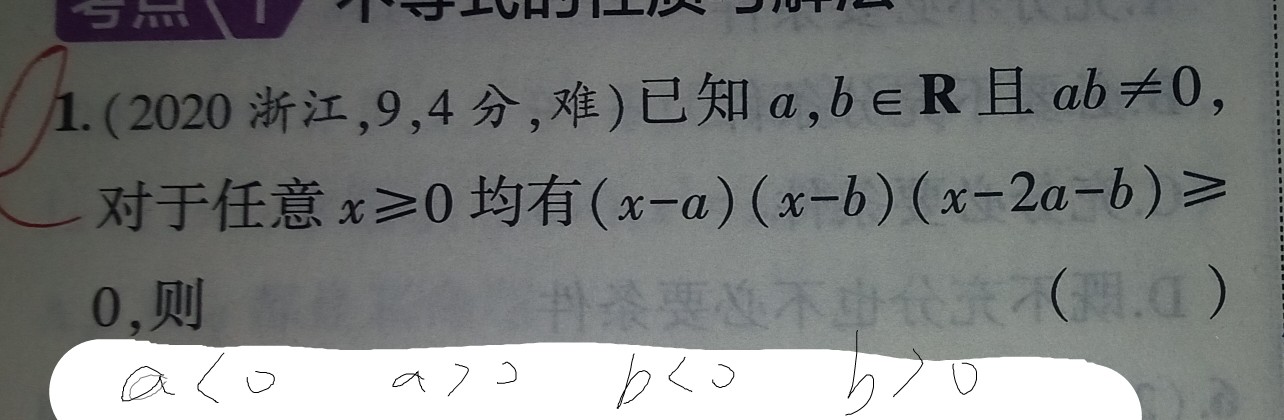 考点 1 不等式的性质与解法
1.(2020 浙江,9,4 分,难)已知 a,b∈R 且 ab≠0,
对于任意 x≥0 均有(x-a)(x-b)(x-2a-b)≥
0,则 ( )
a<0 a>0 b<0 b>0